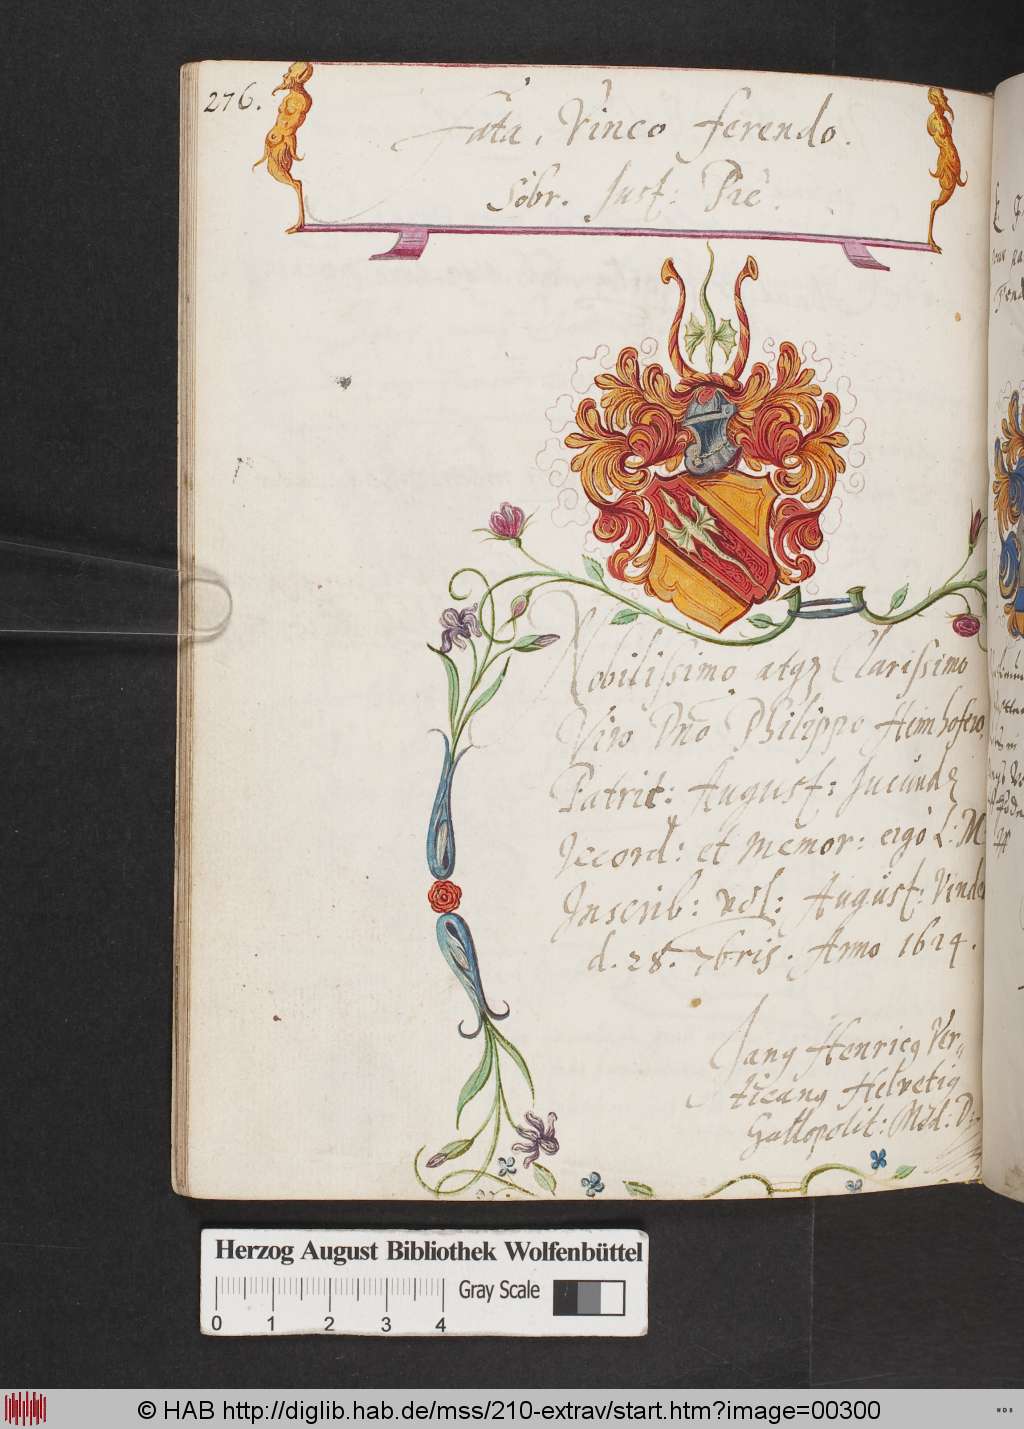 276.
Fata, Vinco ferendo.
Sobr. Just: Piè.
Nobilissimo atqȝ Clarissimo
Viro Dno Philippo Heinhofero,
Patrit: August: Jucundȝ
Record: et Memor: ergò L: M
Inscrib: August: Vindel
d. 28. 7bris. Anno 1624.
Henricq Ver=
ticanq Helvetiq
Gallopolit: Med: D:
Herzog August Bibliothek Wolfenbüttel
Gray Scale
0 1 2 3 4
© HAB http://diglib.hab.de/mss/210-extrav/start.htm?image=00300